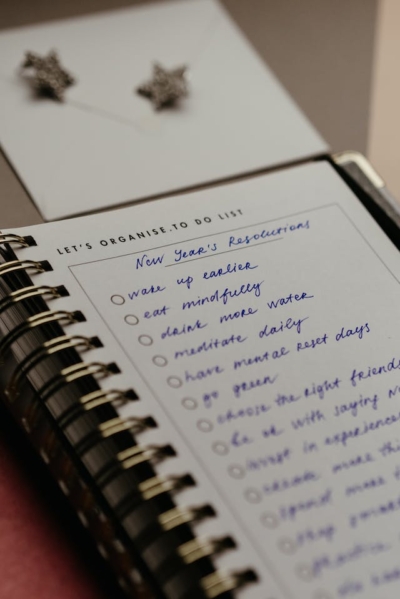 LET'S ORGANISE.TO DO LIST
New Year's Resolutions
wake up earlier
eat mindfully
drink more water
meditate daily
have mental reset days
go green
choose the right friends
be ok with saying No
invest in experiences
create more
spend more
shop
practice